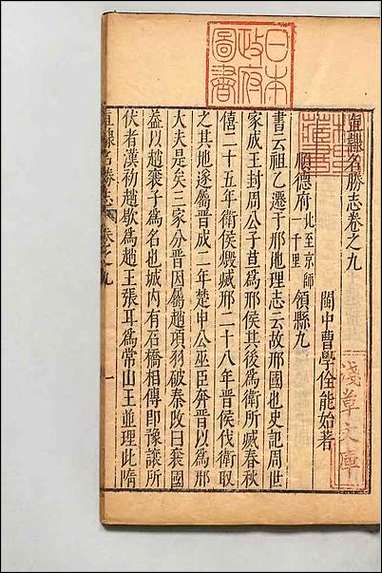 日本
政府
圖書
直隸名勝志卷之九
閩中曹學佺能始著
淺草文庫
順德府 北至京師一千里 領縣九
書云祖乙遷于邢地理志云故邢國也史記周世
家成王封周公子苴爲邢侯其後爲衛所滅春秋
僖二十五年衛侯燬滅邢二十八年晉侯伐衛取
之其地遂屬晉成二年楚申公巫臣奔晉以爲邢
大夫是矣三家分晉因屬趙項羽破秦改曰襄國
益以趙襄子爲名也城内有石橋相傳即豫讓所
伏者漢初趙歇爲趙王張耳爲常山王並理此隋
直隸名勝志 卷之九
一